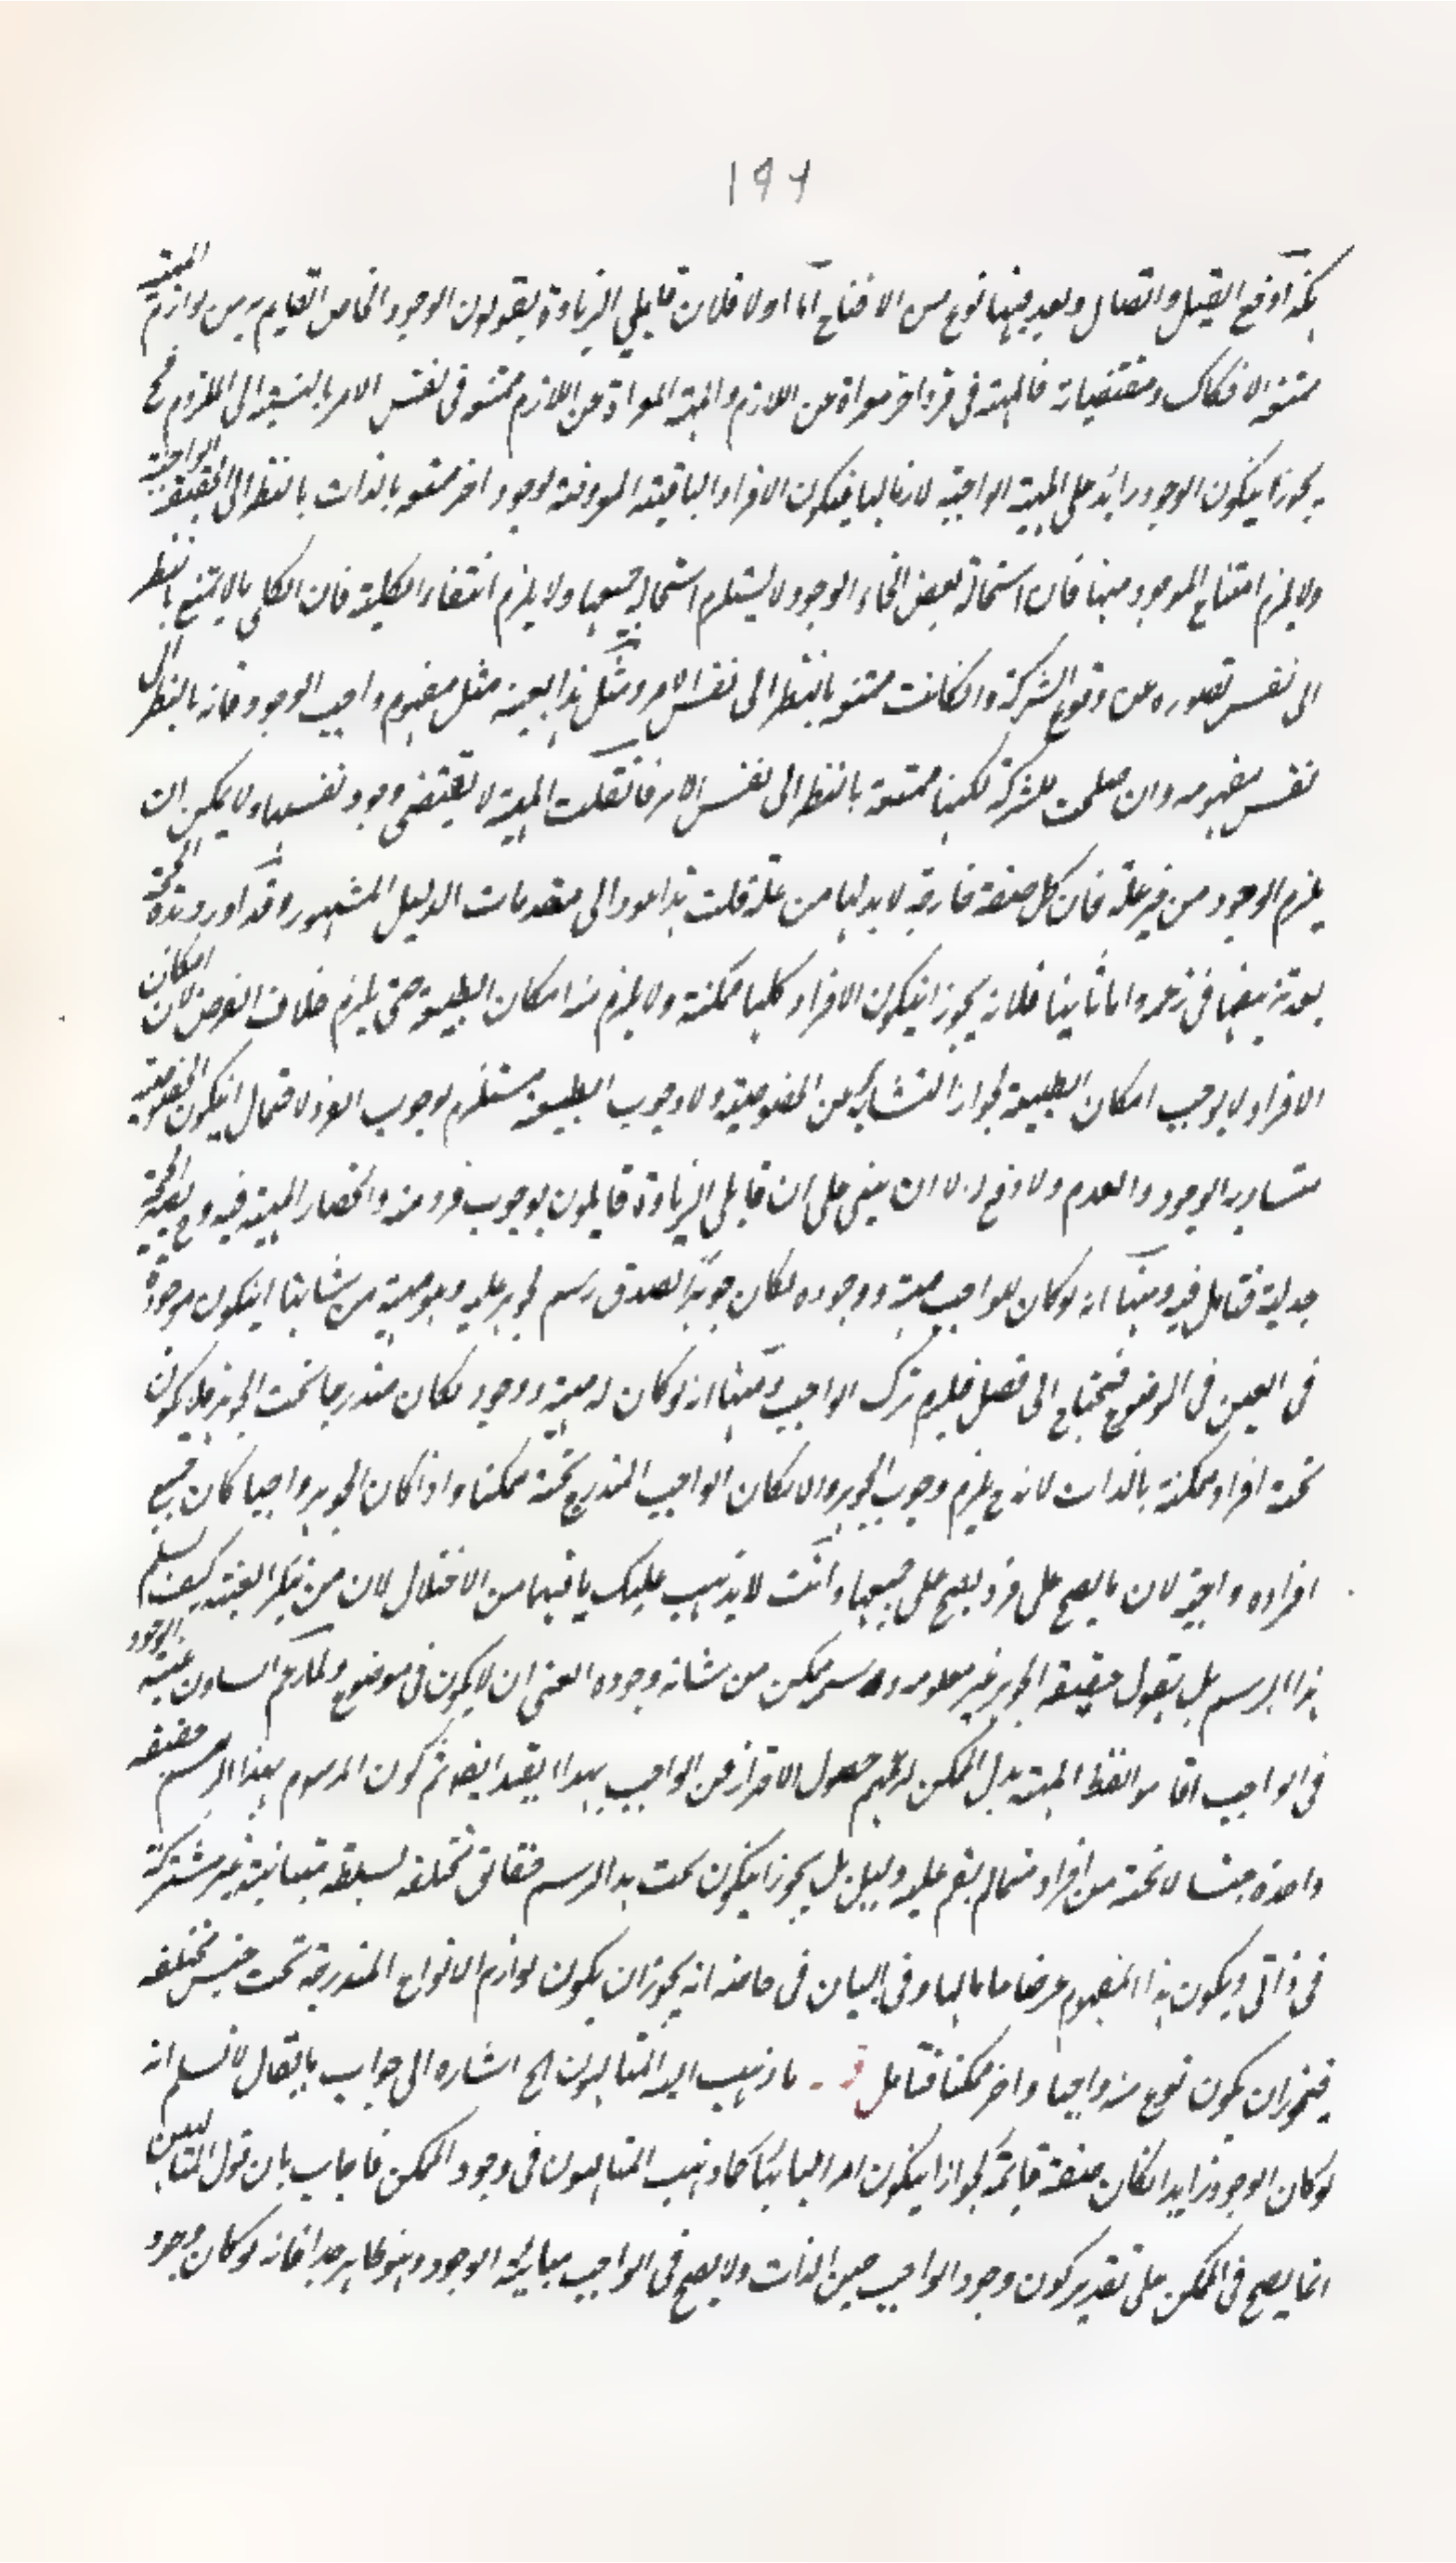 ١٩٦
هكذا وقع القيل والقال وبعد فيها نوع من الاقناع اما اولا فلان قايلي الزيادة يقولون الوجود الخاص القايم به من لوازم المهية
ممتنعة الانفكاك ومقتضياته فالمهية في فرد اخر معراة عن اللازم والمهية المعراة عن اللازم ممتنعة في نفس الامر بالنسبة الى الملزوم فح
يجوز ان يكون الوجود زائدا على المهية الواجبة لازما لها فيكون الافراد الباقية المعروضة لوجود اخر ممتنعة بالذات بالنظر الى الحقيقة الواجبة
ولا يلزم امتناع الموجود منها فان استحالة بعض انحاء الوجود لا يستلزم استحالة جميعها ولا يلزم انتفاء الكلية فان الكلي ما لا يمتنع بالنظر
الى نفس تصوره عن وقوع الشركة وان كانت ممتنعة بالنظر الى نفس الامر ومثل هذا بعينه مثل مفهوم واجب الوجود فانه بالنظر الى
نفس مفهومه وان صلحت للشركة لكنها ممتنعة بالنظر الى نفس الامر فان قلت المهية لا يقتضي وجود نفسها ولا يمكن ان
يلزم الوجود من غير علة فان كل صفة خارجة لا بد لها من علة قلت هذا عود الى مقدمات الدليل المشهور وقد اورد هذه الحجة
بعد تزييفها في زعمه واما ثانيا فلانه يجوز ان يكون الافراد كلها ممكنة ولا يلزم منه امكان الطبيعة حتى يلزم خلاف الفرض لان امكان
الافراد لا يوجب امكان الطبيعة لجواز الناشي عن الخصوصية ولا وجوب الطبيعة مستلزم لوجوب الفرد لاحتمال ان يكون الخصوصية
متساوية الوجود والعدم ولا دفع له الا ان يبنى على ان قايلي الزيادة قايلون بوجوب فرد منه وانحصار المهية فيه وح يصير الحجة
جدلية فتامل فيه ومنها انه لو كان للواجب مهية ووجوده لكان جوهرا لصدق رسم الجوهر عليه وهو مهية من شانها ان يكون موجودة
في العين لا في الموضوع فيحتاج الى فصل فيلزم تركب الواجب ومنها انه لو كان له مهية ووجود لكان مندرجا تحت الجوهر فلا يكون
تحته افراد ممكنة بالذات لانه ح يلزم وجوب الجوهر والا لكان الواجب المندرج تحته ممكنا واذا كان الجوهر واجبا كان جميع
افراده واجبة لان ما يصح على فرد يصح على جميعها وانت لا يذهب عليك ما فيهما من الاختلال لان من ينكر العينية كيف يسلم
هذا الرسم بل يقول حقيقة الجوهر غير معلومة ورسمه ممكن من شانه وجوده العيني ان لا يكون في موضوع ولما زعم المشاؤن عينية الوجود
في الواجب اقاموا لفظ المهية بدل الممكن لزعمهم حصول الاحتراز عن الواجب بهذا القيد ايضا ثم كون المرسوم بهذا الرسم حقيقة
واحدة جنسا لما تحته من افراد مما لم يقم عليه دليل بل يجوز ان يكون تحت هذا الرسم حقائق مختلفة بسيطة متباينة غير مشتركة
في ذاتي ويكون هذا المفهوم عرضا عاما لها وفي البيان في خاصة انه يجوز ان يكون لوازم الانواع المندرجة تحت جنس مختلفة
فيجوز ان يكون نوع منه واجبا واخر ممكنا فتامل قوله ما ذهب اليه المتالهون الخ اشارة الى جواب ما يقال لا نسلم انه
لو كان الوجود زايدا لكان صفة قايمة لجواز ان يكون امرا مباينا كما ذهب المتالهون في وجود الممكن فاجاب بان قول المتالهين
انما يصح في الممكن على تقدير كون وجود الواجب عين الذات ولا يصح في الواجب مباينة الوجود وهو ظاهر جدا فانه لو كان وجود